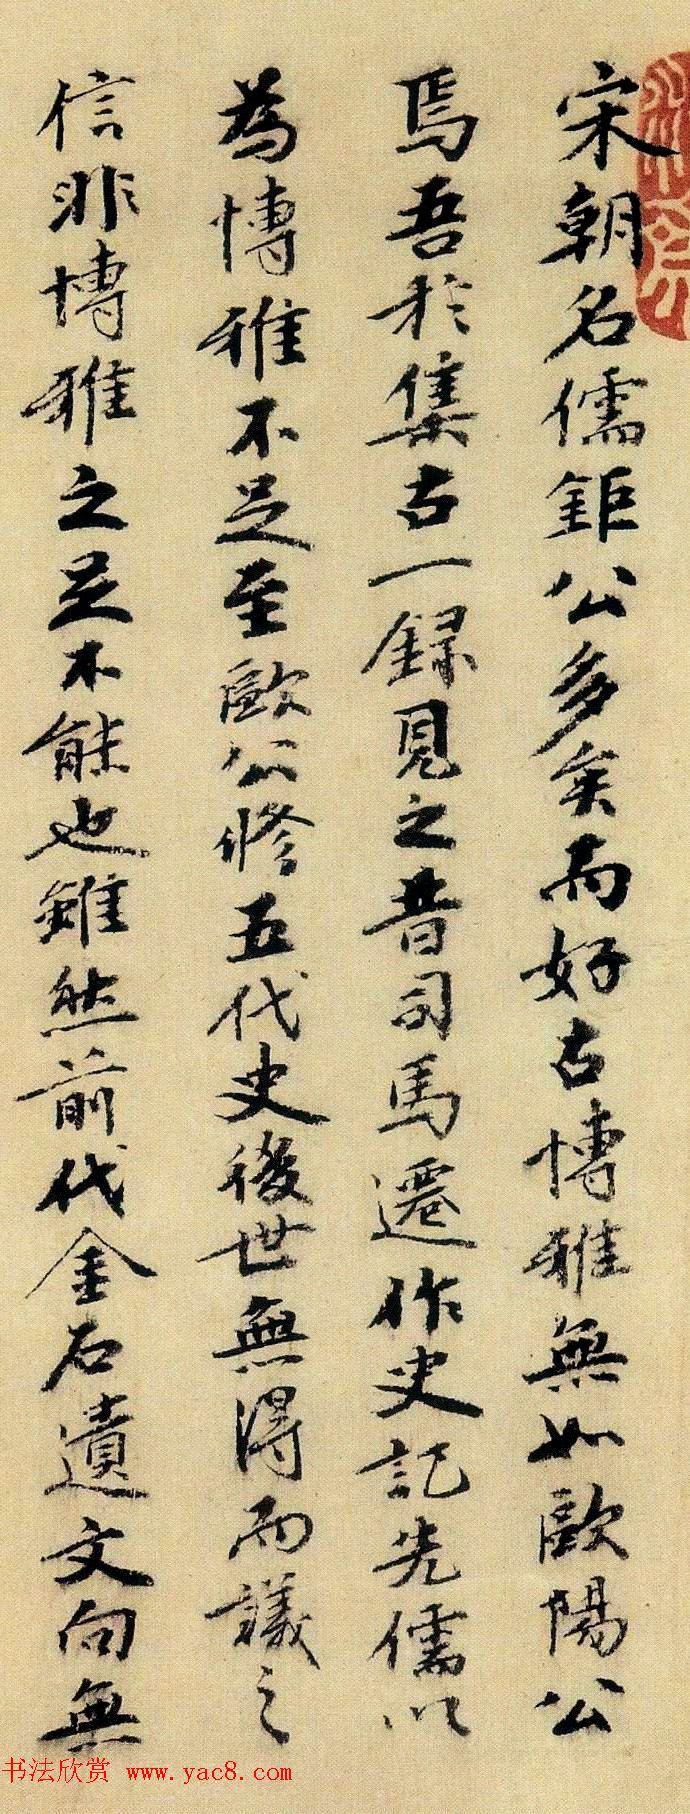 宋朝名儒鉅公多矣而好古博雅無如歐陽公
焉吾於集古一録見之昔司馬遷作史記先儒以
為博雅不足至歐公修五代史後世無得而議之
信非博雅之足不能也雖然前代金石遺文向無
书法欣赏 www.yac8.com